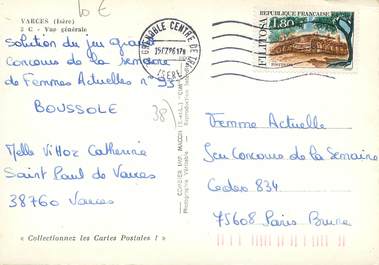 10 €
VARCES (Isère)
2 C - Vue générale
Solution du jeu grand
concours de la semaine
de Femmes Actuelles n° 95
BOUSSOLE
38)
Melle Vittoz Catherine
Saint Paul de Varces
38760 Varces
« Collectionnez les Cartes Postales ! »
COMBIER IMP. MACON
Photographie Véritable
Reproduction
GRENOBLE CENTRE DE TRI
ISERE
RÉPUBLIQUE FRANÇAISE
1,80
FILITOSA
POSTES 1986
Femme Actuelle
Jeu Concours de la Semaine
Cedex 834
75608 Paris Brune